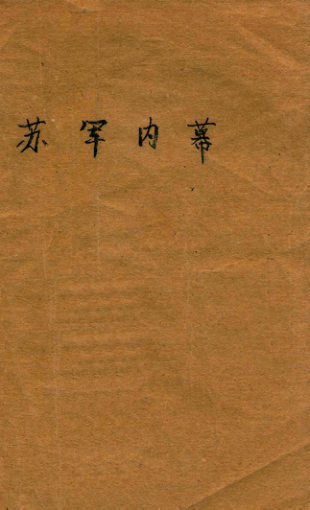 苏军内幕